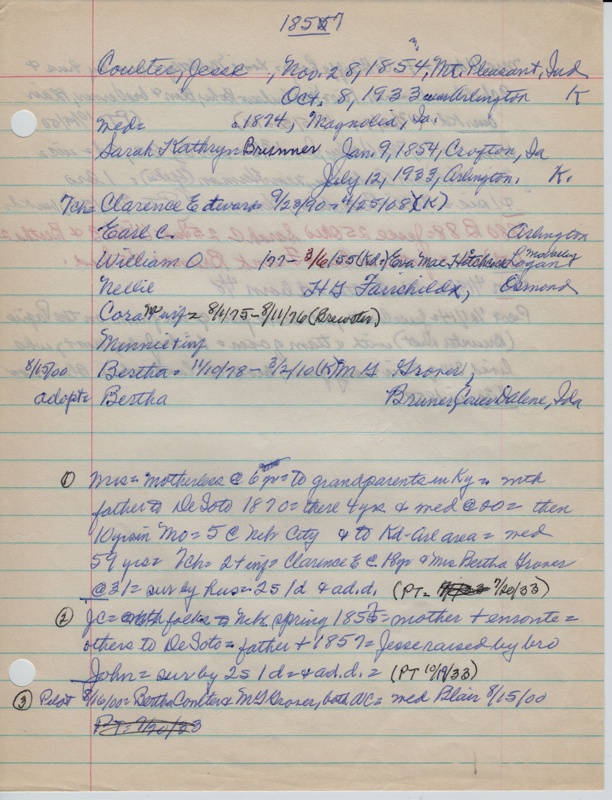 1857
Coulter, Jesse , Nov. 28, 1854, Mt. Pleasant, Ind
Oct. 8, 1933 Arlington K
Med= 1874, Magnolia, Ia.
Sarah Kathryn Brunner Jan. 9, 1854, Croyton, Ia
July 12, 1933, Arlington. K.
7ch= Clarence Edward= 9/23/90=4/25/08 (K)
Earl C. Arlington
William O 177- 3/6/55 (Kd) Eva Mae Hitchcock Logan
Nellie H G Fairchild, Osmond
Cora inf= 8/1/75-8/11/76 (Brewster)
Minnie+inf
8/15/00 Bertha= 11/10/78-3/2/10 (K) M G Grover,
adopt= Bertha Bruner, Couer D'Alene, Ida
① Mrs= motherless @ 6 yr= to grandparents in Ky= mth
father to DeSoto 1870= there 4 yrs & med @ 00= then
10 yrs in Mo= 5 @ Neb City & to Kd-Arl area= med
59 yrs= 7ch= 2+inf= Clarence E @ 18yr & Mrs Bertha Grover
@ 31= sur by hus= 2s 1d & ad.d. (PT= 7/20/33)
② JC= folks Neb spring 185 =mother + enroute=
others to DeSoto= father + 1857= Jesse raised by bro
John= sur by 2s 1d= & ad.d.= (PT 10/19/33)
③ Pilot 8/16/00= Bertha Coulter & M G Grover, both WC= med Blair 8/15/00
PT= 7/20/33